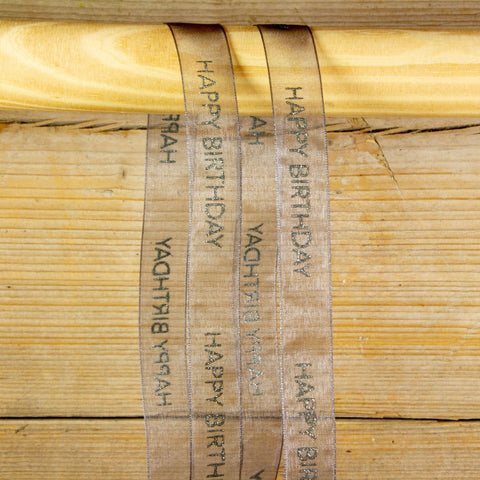 HAPPY BIRTHDAY
HAPPY BIRTHDAY
HAPPY BIRTHDAY
HAPPY BIRTH
HAPPY BIRTHDAY
HAPPY BIRTHDAY
HAPPY BIRTH